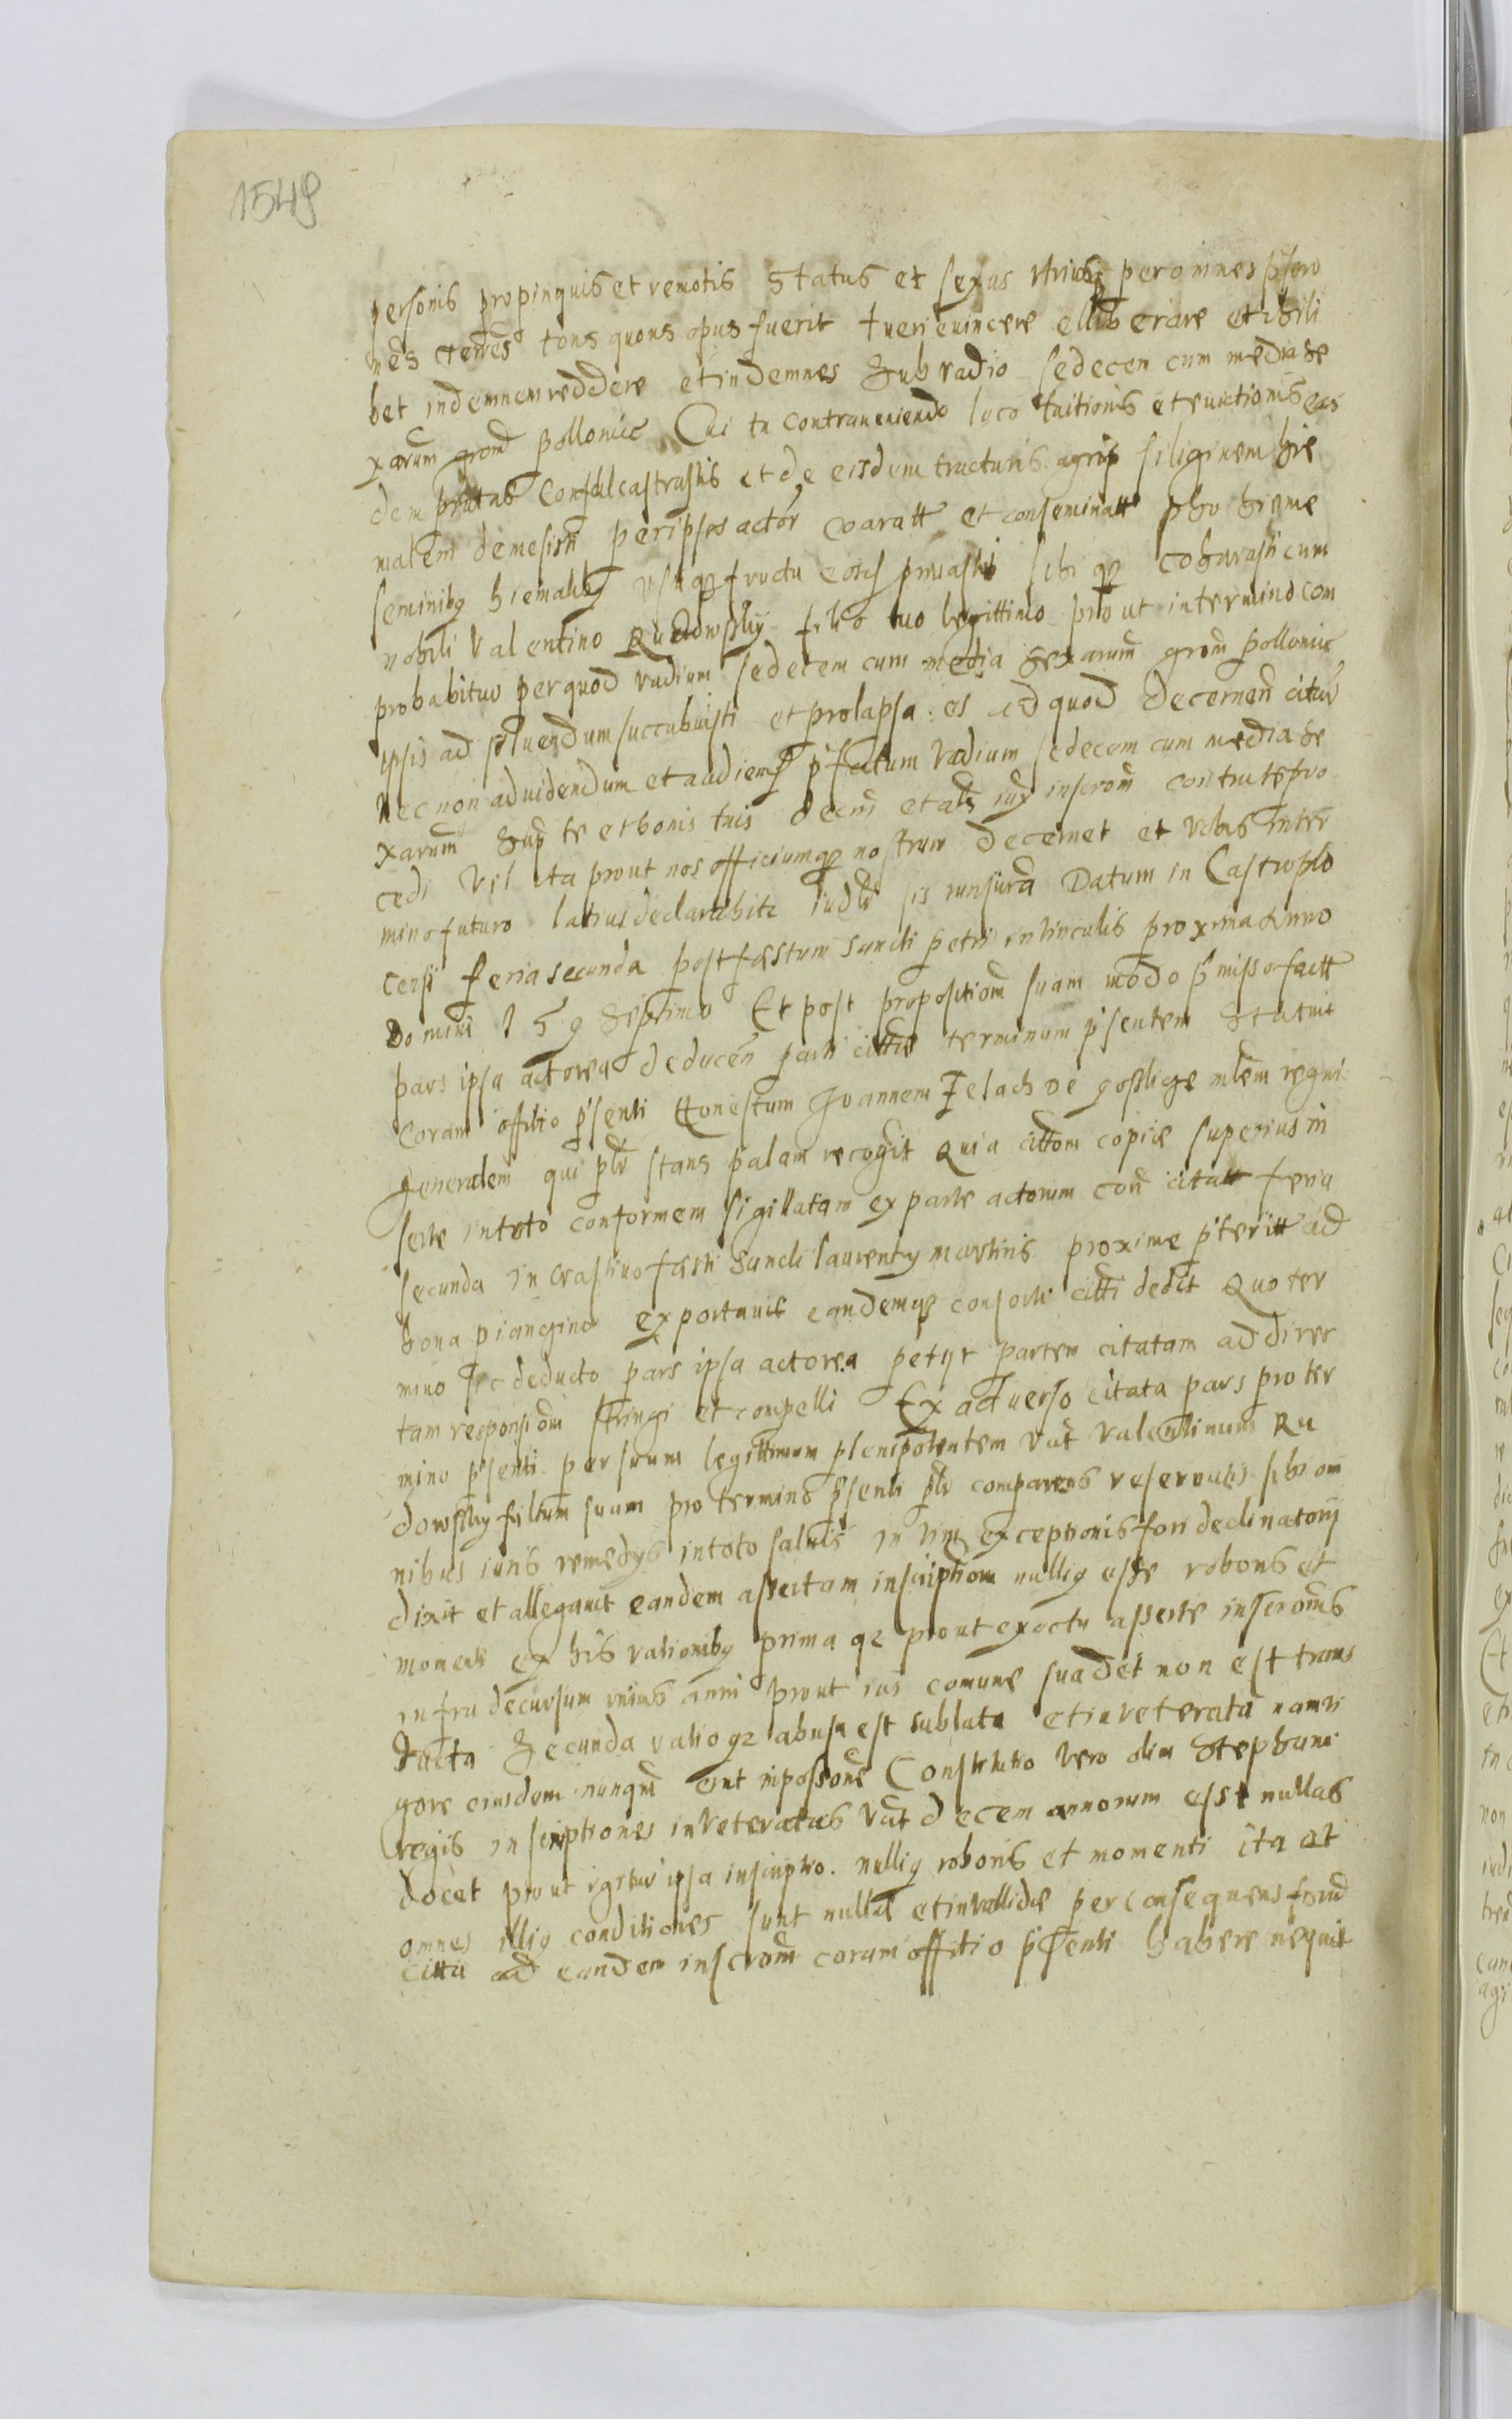 1549
personis propinquis et remotis Status et sexus utriusq per omnes
nes terres tons quons opus fuerit tueri evincere elliberare et ibili
bet indemnem reddere et indemnes Sub vadio sedecem cum media se
xarum grom Pollonic Cui tu contraveniendo loco tuitionis et evictionis eas
dem pratas Confalcastrastis et de eisdem tracturis agris siliginem hie
malem demesisti per ipsos actor oaratt et conseminatt hieme
seminiby hiemaliby usuq fructu eosq privastis sibi q usurasti cum
nobili Valentino Rudowsky filio tuo legittimo prout in termino com
probabitur per quod vadium sedecem cum media Sexarum grom pollonic
ipsis ad solvendum succubuisti et prolapsa es ad quod decernen citar
Nec non ad videndum et audiend pfatum Vadium sedecem cum media se
xarum Sup te et bonis tuis decni et als iux inscrom contra te pro
cedi Vel ita prout nos officiumq nostrum decernet et Vobis in ter
mino futuro latius declarabitr sis Datum in Castro
censi feria secunda post festum Sancti Petri in vinculis proxima Anno
Domini 159 Septimo Et post propositiom suam modo pmisso factt
pars ipsa actorea deducen parti citte terminum psentem Statuit
Coram offitio psenti Honestum Joannem Zelach de mlem regni
generalem qui plr stans palam recogit Quia cittom copie superius in
serte in toto conformem sigillatam ex parte actorum con citatt feria
secunda in Crastino festi Sancti Laurenty martiris proxime pteritt ad
bona piangino exportavit eandemq consorti citti dedit Quo ter
mino sic deducto pars ipsa actorea petyt partem citatam ad direc
tam responsiom stringi et compelli Ex adverso citata pars pro ter
mino psenti per suum legittimum plenipotentem vut Valentinum Ru
dowsky filium suum pro termino psenti plr comparens reservatis sibi om
nibus iuris remedys in toto salvis in vim exceptionis fori declinatorij
dixit et allegavit eandem assertam inscriptiom nulliy esse roboris et
momenti ex his rationiby prima q prout exactu asserte inscromis
infra decursum unius anni prout ius comune suadet non est trans
ducta Secunda ratio q abusa est sublata et inveterata nam vi
gore eiusdem nunqm erut in possone Constitutio Vero olim Stephani
regis inscriptiones inveteratas Vut decem annorum esse nullas
docet prout igitur ipsa inscriptio nulliy roboris et momenti ita et
omnes illiy conditiones sunt nullae et invallidae per consequens forud
citta ad eandem inscrom coram offitio psenti habere nequit